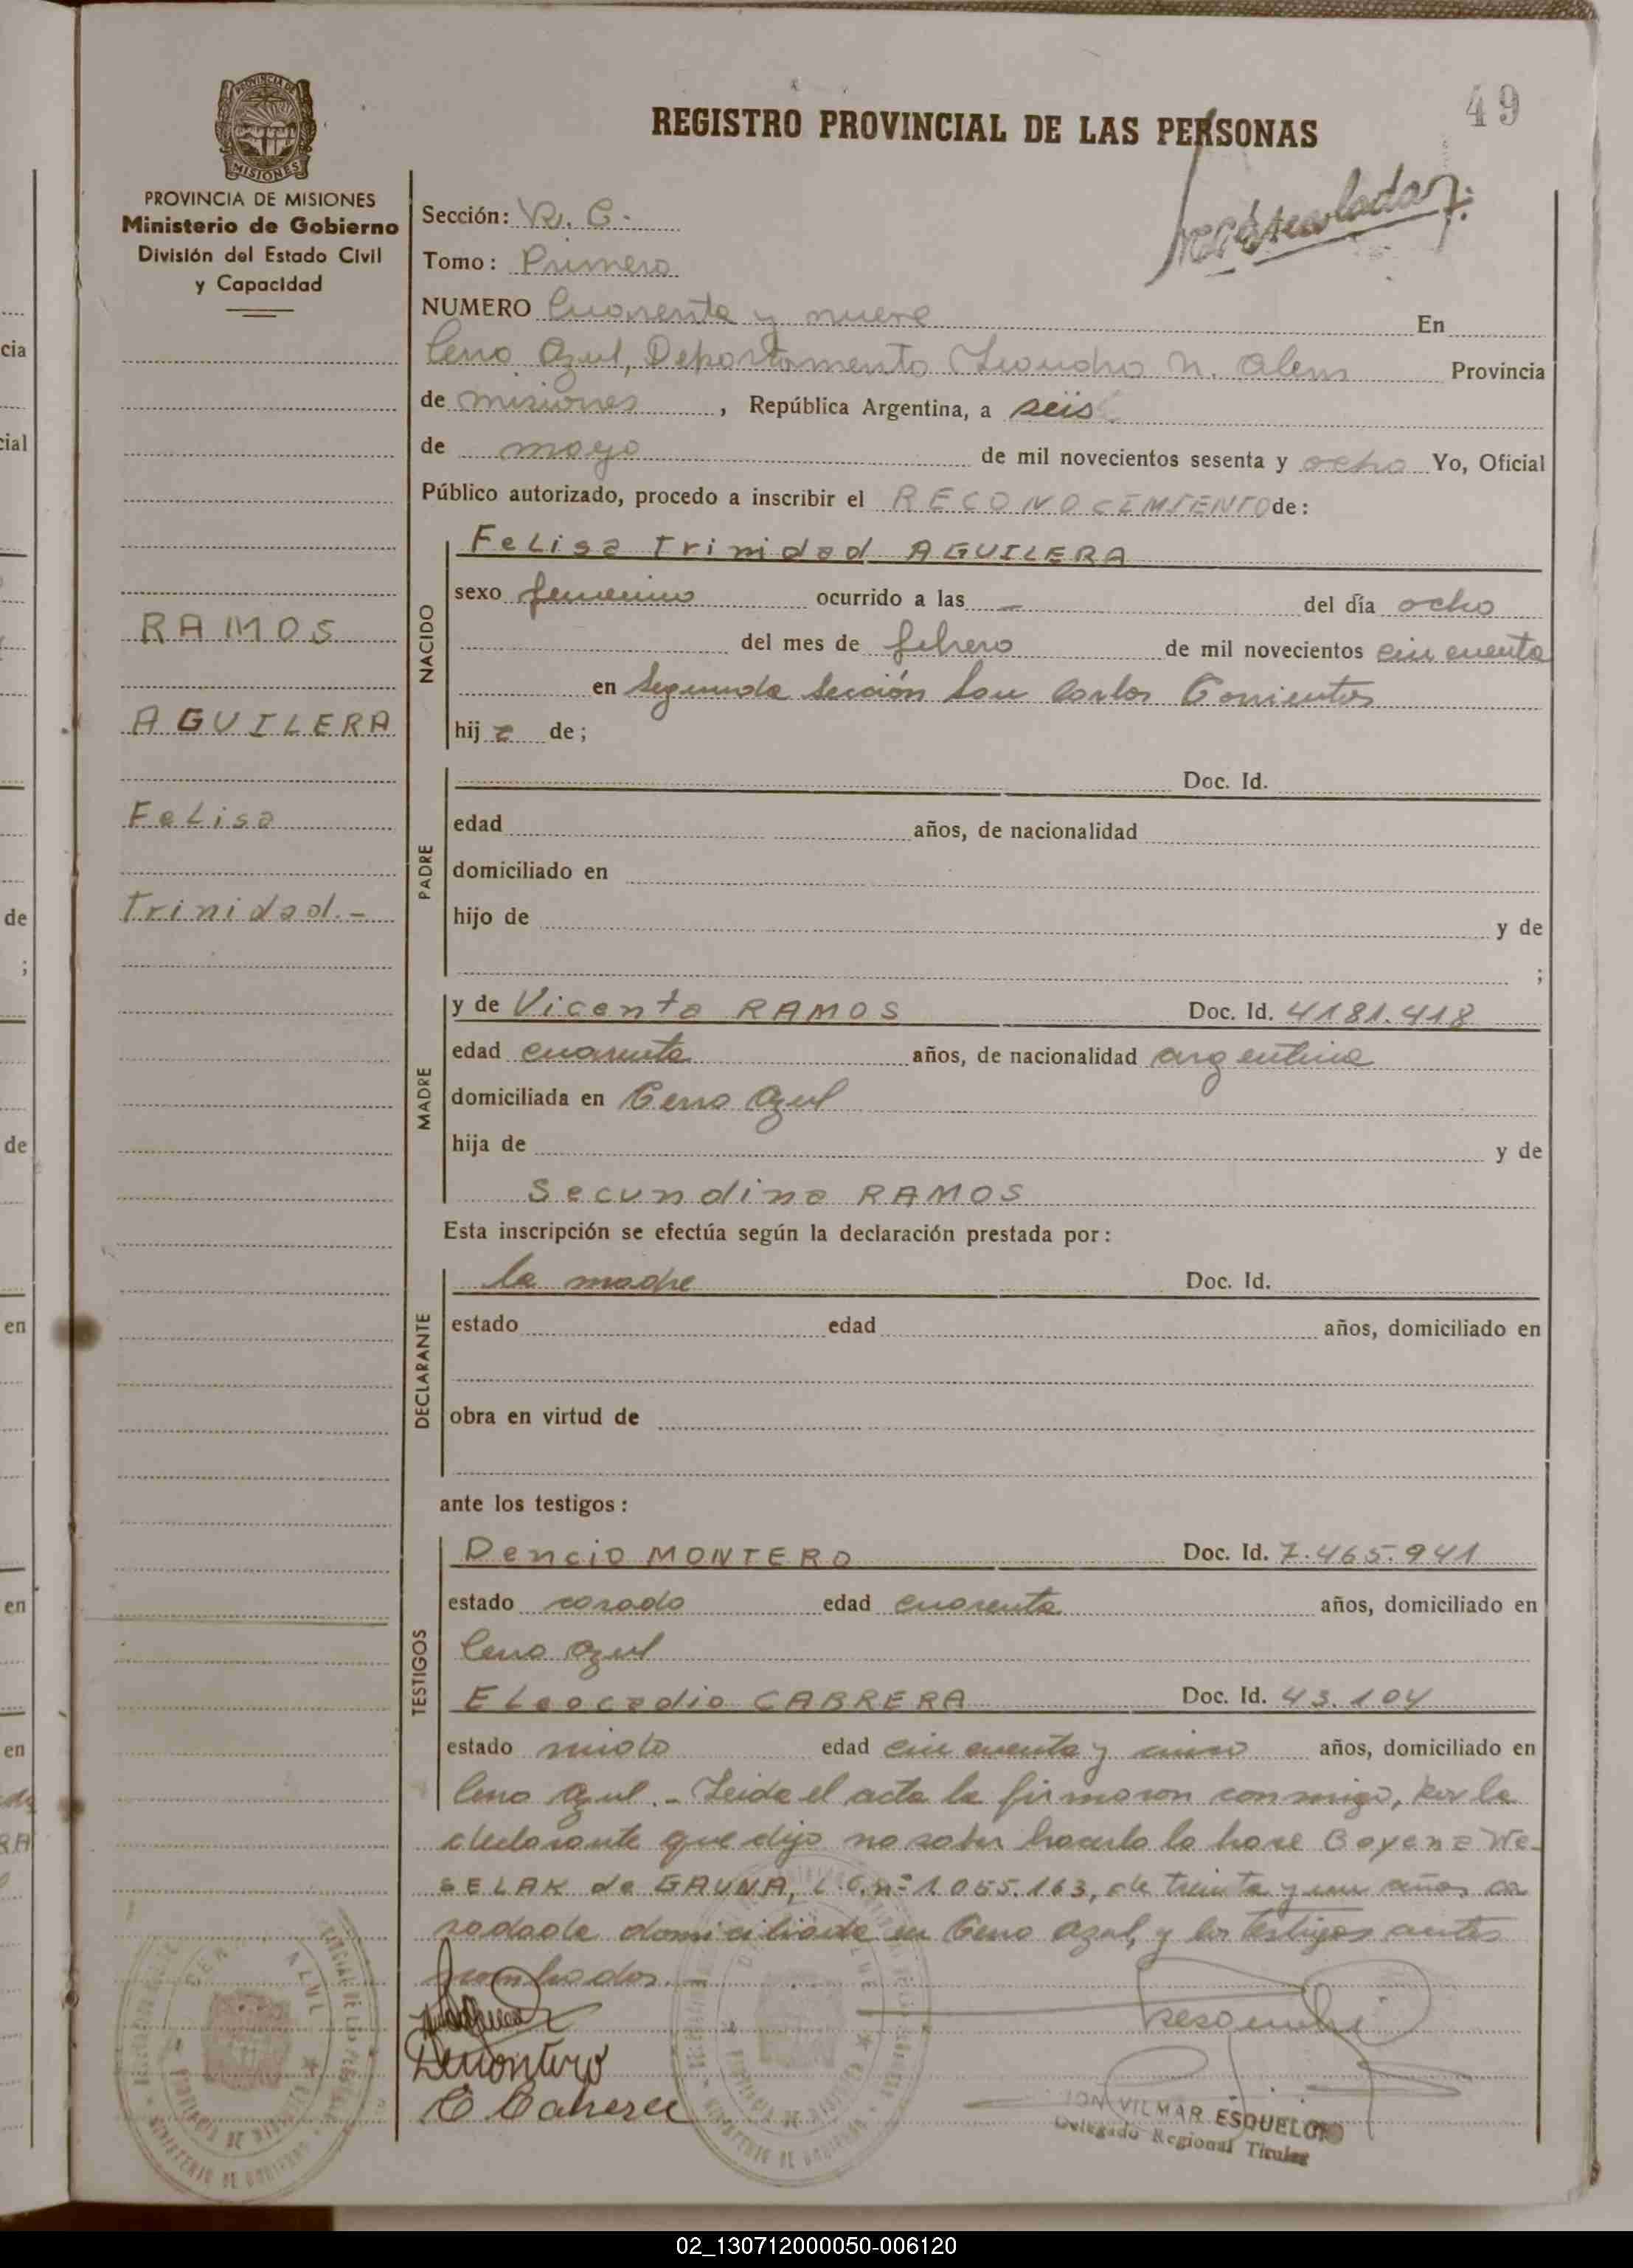 49
REGISTRO PROVINCIAL DE LAS PERSONAS
PROVINCIA DE
MISIONES
PROVINCIA DE MISIONES
Ministerio de Gobierno
División del Estado Civil
y Capacidad
Sección: R. C.
Tomo: Primero
NUMERO Cuarenta y nueve En
Cerro Azul, Departamento Leandro N. Alem Provincia
de misiones, República Argentina, a seis
de mayo de mil novecientos sesenta y ocho Yo, Oficial
Público autorizado, procedo a inscribir el RECONOCIMIENTO de:
RAMOS
AGUILERA
Felisa
Trinidad.-
NACIDO
Felisa Trinidad AGUILERA
sexo femenino ocurrido a las - del día ocho
del mes de febrero de mil novecientos cincuenta
en Segunda Sección San Carlos Corrientes
hij a de;
PADRE
Doc. Id.
edad años, de nacionalidad
domiciliado en
hijo de y de
;
MADRE
y de Vicenta RAMOS Doc. Id. 4181.418
edad cuarenta años, de nacionalidad argentina
domiciliada en Cerro Azul
hija de y de
Secundina RAMOS
Esta inscripción se efectúa según la declaración prestada por:
DECLARANTE
la madre Doc. Id.
estado edad años, domiciliado en
obra en virtud de
ante los testigos:
TESTIGOS
Dencio MONTERO Doc. Id. 7.465.941
estado casado edad cuarenta años, domiciliado en
Cerro Azul
Eleocadio CABRERA Doc. Id. 43.104
estado viudo edad cincuenta y cinco años, domiciliado en
Cerro Azul.- Leida el acta la firmaron conmigo, por la
declarante que dijo no saber hacerlo lo hace Boyena We-
SELAK de GAUNA, L.C.nº 1.055.163, de treinta y un años ca
sadada domiciliada en Cerro Azul, y los testigos antes
nombrados.-
D Montero
E Cabrera
CERRO AZUL
PROVINCIA DE MISIONES
MINISTERIO DE GOBIERNO
VILMAR ESQUELO
Delegado Regional Titular
cia
cial
de
;
de
en
en
en
02_130712000050-006120